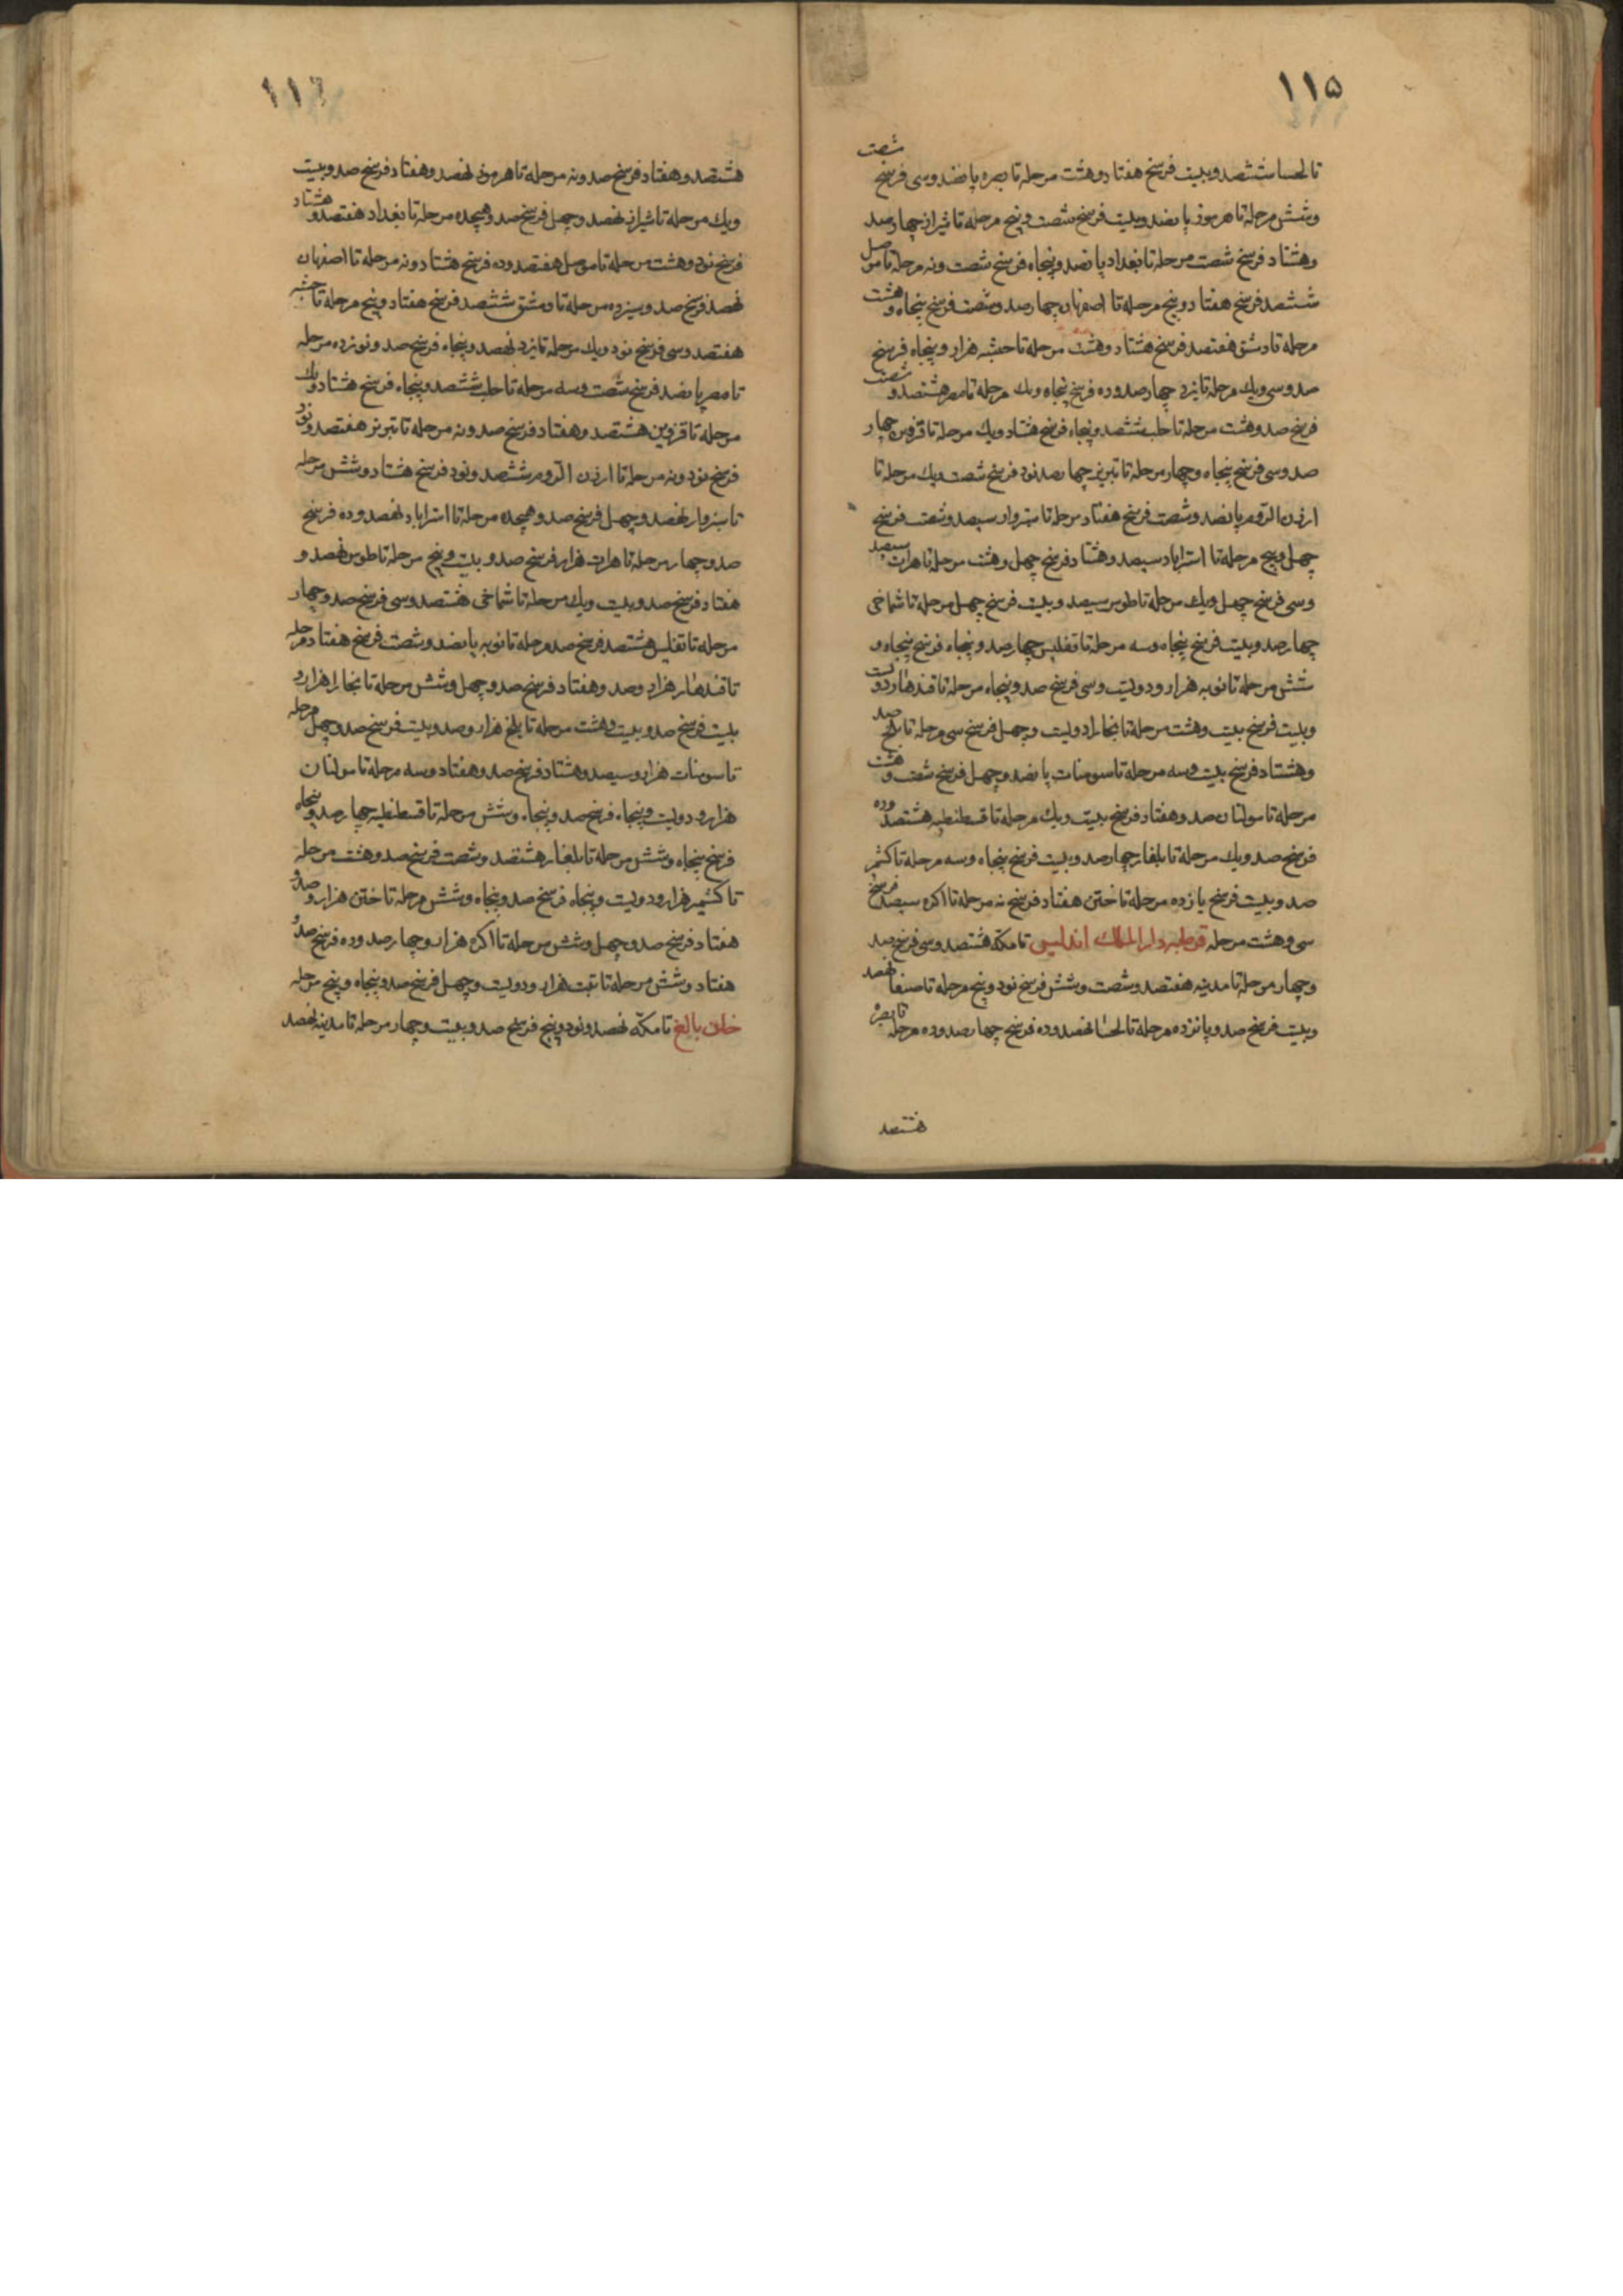 ۱۱۵
تا لحسا ششصد و بیست فرسنخ هفتاد و هشت مرحله تا بصره پانصد و سی فرسنخ شصت
و شش مرحله تا هرموز پانصد و بیست فرسنخ شصت و پنج مرحله تا شیراز چهارصد
و هشتاد فرسنخ شصت مرحله تا بغداد پانصد و پنجاه فرسنخ شصت و نه مرحله تا موصل
ششصد فرسنخ هفتاد و پنج مرحله تا اصفهان چهارصد و شصت فرسنخ پنجاه و هشت
مرحله تا دمشق هفتصد فرسنخ هشتاد و هشت مرحله تا حبشه هزار و پنجاه فرسنخ
صد و سی و یک مرحله تا یزد چهارصد و ده فرسنخ پنجاه و یک مرحله تا مصر هشتصد و شصت
فرسنخ صد و هشت مرحله تا حلب ششصد و پنجاه فرسنخ هشتاد و یک مرحله تا قزوین چهار
صد و سی فرسنخ پنجاه و چهار مرحله تا تبریز چهارصد نود فرسنخ شصت و یک مرحله تا
ارزن الروم پانصد و شصت فرسنخ هفتاد مرحله تا سبزوار سیصد و شصت فرسنخ
چهل و پنج مرحله تا استراباد سیصد و هشتاد فرسنخ چهل و هشت مرحله تا هرات سیصد
و سی فرسنخ چهل و یک مرحله تا طوس سیصد و بیست فرسنخ چهل مرحله تا شماخی
چهارصد و بیست فرسنخ پنجاه و سه مرحله تا تفلیس چهارصد و پنجاه فرسنخ پنجاه و
شش مرحله تا نوبه هزار و دویست و سی فرسنخ صد و پنجاه مرحله تا قندهار دویست
و بیست فرسنخ بیست و هشت مرحله تا بخارا دویست و چهل فرسنخ سی مرحله تا بلخ صد
و هشتاد فرسنخ بیست و سه مرحله تا سومنات پانصد و چهل فرسنخ شصت و هشت
مرحله تا مولتان صد و هفتاد فرسنخ بیست و یک مرحله تا قسطنطیه هشتصد و ده
فرسنخ صد و یک مرحله تا بلغار چهارصد و بیست فرسنخ پنجاه و سه مرحله تا کشمیر
صد و بیست فرسنخ یازده مرحله تا ختن هفتاد فرسنخ نه مرحله تا اکره سیصد فرسنخ
سی و هشت مرحله قرطبه دار الملک اندلس تا مکه هشتصد و سی فرسنخ صد
و چهار مرحله تا مدینه هفتصد و شصت و شش فرسنخ نود و پنج مرحله تا صنعا نهصد
و بیست فرسنخ صد و پانزده مرحله تا لحسا نهصد و ده فرسنخ چهارصد و ده مرحله تا بصره
هشتصد
۱۱۶
هشتصد و هفتاد فرسنخ صد و نه مرحله تا هرموز نهصد و هفتاد فرسنخ صد و بیست
و یک مرحله تا شیراز نهصد و چهل فرسنخ صد و هیجده مرحله تا بغداد هفتصد و هشتاد
فرسنخ نود و هشت مرحله تا موصل هفتصد و ده فرسنخ هشتاد و نه مرحله تا اصفهان
نهصد فرسنخ صد و سیزده مرحله تا دمشق ششصد فرسنخ هفتاد و پنج مرحله تا حبشه
هفتصد و سی فرسنخ نود و یک مرحله تا یزد نهصد و پنجاه فرسنخ صد و نوزده مرحله
تا مصر پانصد فرسنخ شصت و سه مرحله تا حلب ششصد و پنجاه فرسنخ هشتاد و یک
مرحله تا قزوین هشتصد و هفتاد فرسنخ صد و نه مرحله تا تبریز هفتصد و نود
فرسنخ نود و نه مرحله تا ارزن الروم ششصد و نود فرسنخ هشتاد و شش مرحله
تا سبزوار نهصد و چهل فرسنخ صد و هیجده مرحله تا استراباد نهصد و ده فرسنخ
صد و چهار مرحله تا هرات هزار فرسنخ صد و بیست و پنج مرحله تا طوس نهصد و
هفتاد فرسنخ صد و بیست و یک مرحله تا شماخی هشتصد و سی فرسنخ صد و چهار
مرحله تا تفلیس هشتصد فرسنخ صد مرحله تا نوبه پانصد و شصت فرسنخ هفتاد مرحله
تا قندهار هزار و صد و هفتاد فرسنخ صد و چهل و شش مرحله تا بخارا هزار و
بیست فرسنخ صد و بیست و هشت مرحله تا بلخ هزار و صد و بیست فرسنخ صد و چهل مرحله
تا سومنات هزار و سیصد و هشتاد فرسنخ صد و هفتاد و سه مرحله تا مولتان
هزار و دویست و پنجاه فرسنخ صد و پنجاه و شش مرحله تا قسطنطیه چهارصد و پنجاه
فرسنخ پنجاه و شش مرحله تا بلغار هشتصد و شصت فرسنخ صد و هشت مرحله
تا کشمیر هزار و دویست و پنجاه فرسنخ صد و پنجاه و شش مرحله تا ختن هزار و صد و
هفتاد فرسنخ صد و چهل و شش مرحله تا اکره هزار و چهارصد و ده فرسنخ صد و
هفتاد و شش مرحله تا تبت هزار و دویست و چهل فرسنخ صد و پنجاه و پنج مرحله
خان بالغ تا مکه نهصد و نود و پنج فرسنخ صد و بیست و چهار مرحله تا مدینه نهصد